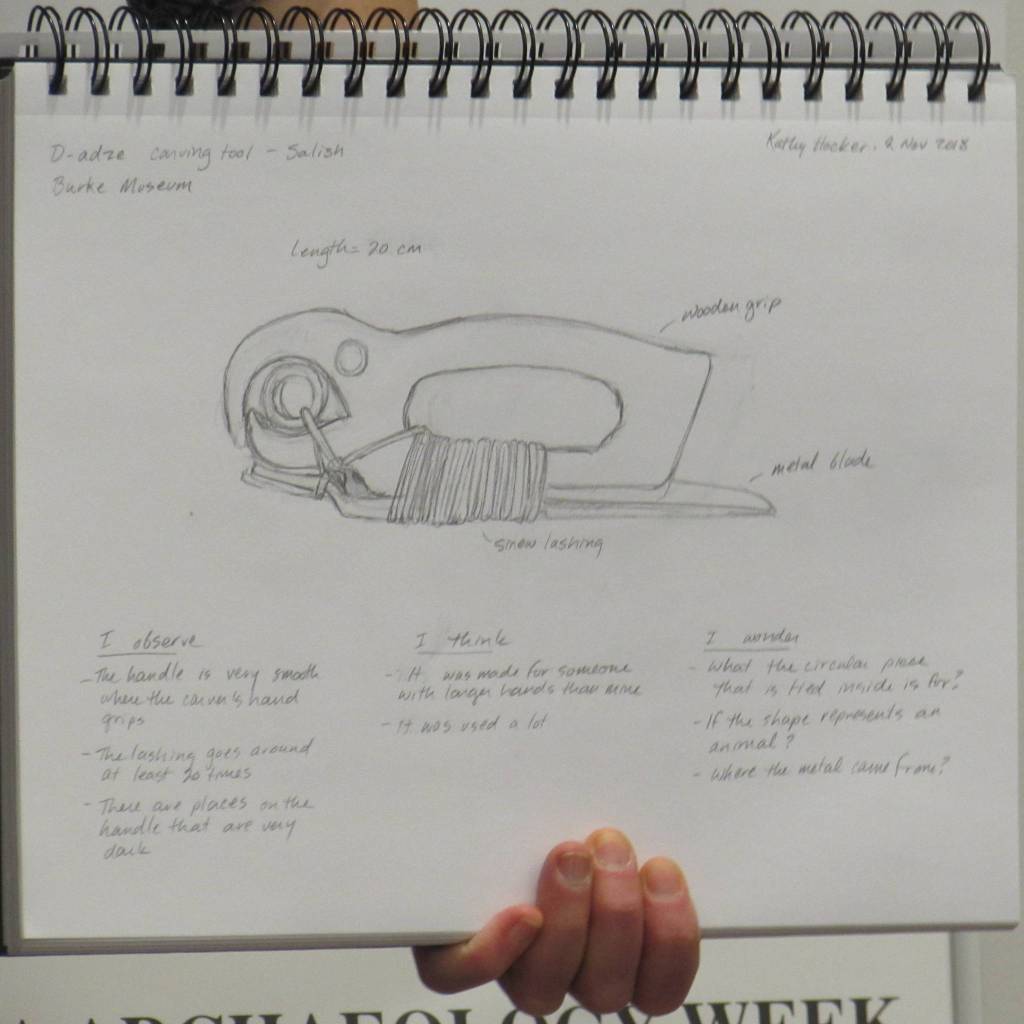 D-adze carving tool - Salish
Burke Museum
Kathy Hocker. 2 Nov 2018
Length = 20 cm
wooden grip
metal blade
sinew lashing
I observe
- The handle is very smooth
where the carver's hand
grips
- The lashing goes around
at least 20 times
- There are places on the
handle that are very
dark
I think
- It was made for someone
with larger hands than mine
- It was used a lot
I wonder
- What the circular piece
that is tied inside is for?
- If the shape represents an
animal?
- Where the metal came from?
ARCHAEOLOGY WEEK